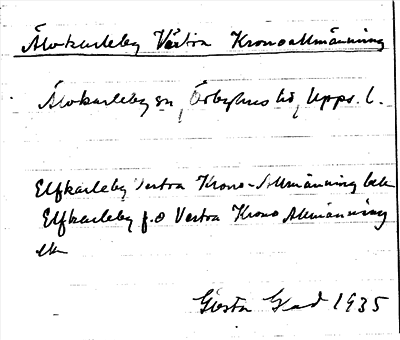 Älvkarleby Västra Kronoallmänning
Älvkarleby sn, Örbyhus hd, Upps. l.
Elfkarleby Vestra Krono-Allmänning
Elfkarleby f.o Vestra Krono Allmänning
Gösta 1935